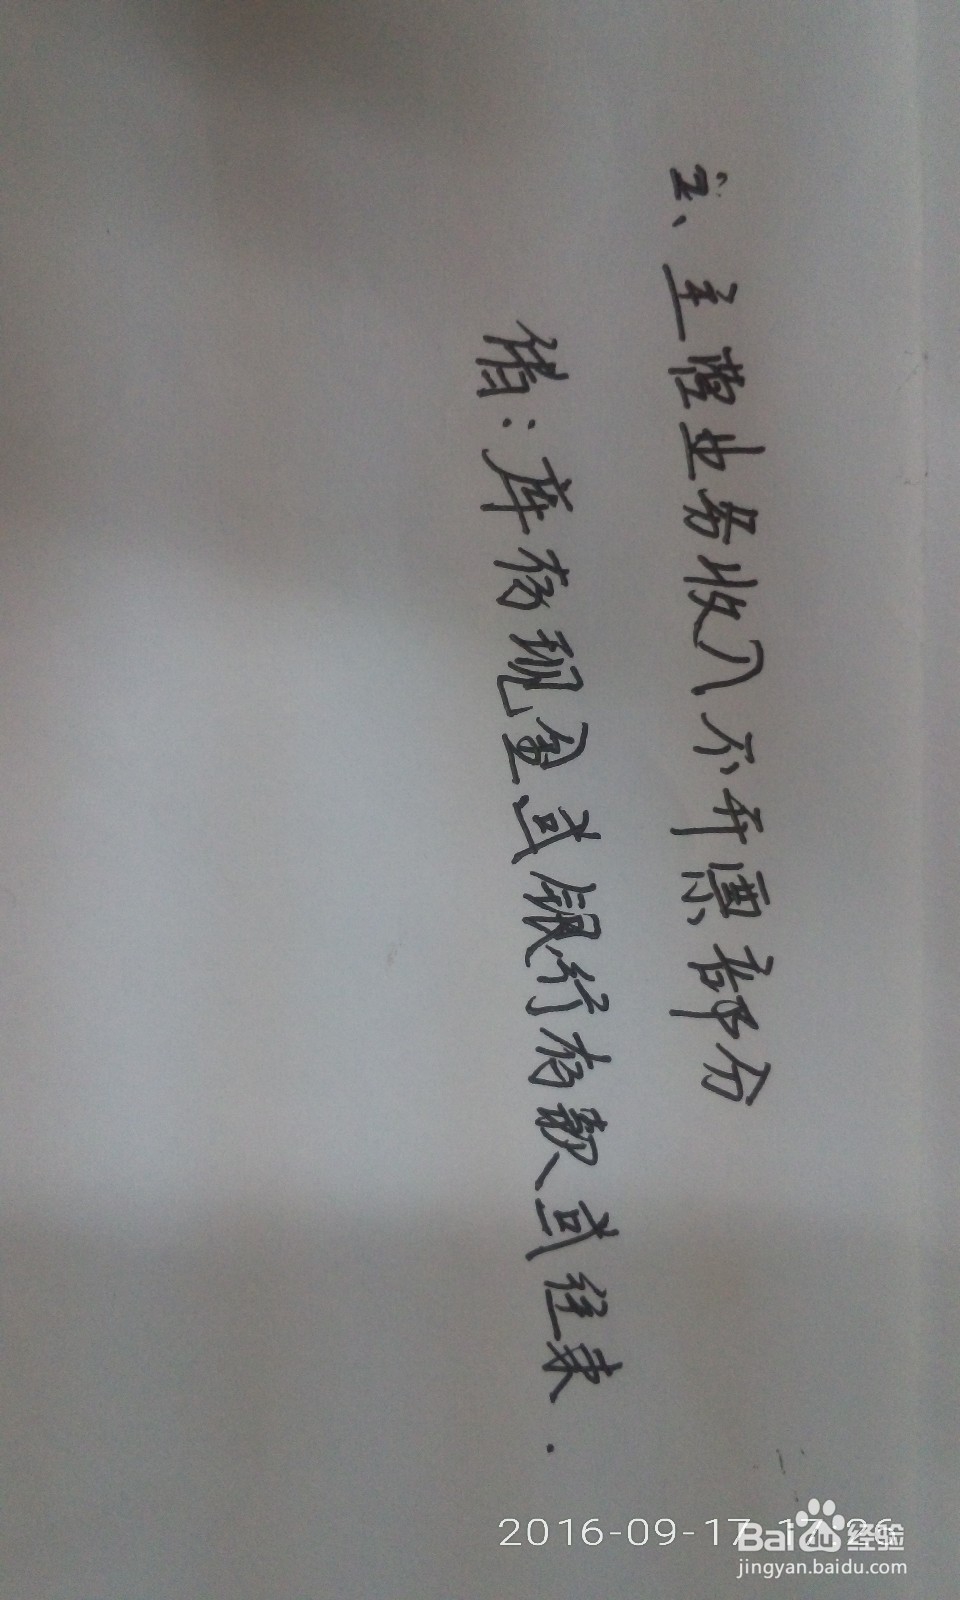 2、主营业务收入不开票部分
借:库存现金或银行存款或往来.
2016-09-17 17:26
Bai 经验
jingyan.baidu.com